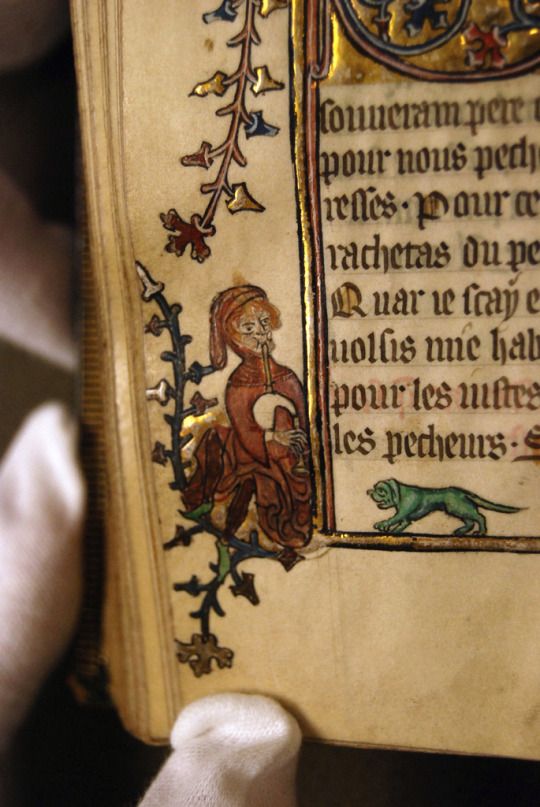 souueram pere
pour nous pech
resses. Pour ce
rachetas du pe
Quar ie scay e
uolsis mie hab
pour les iustes
les pecheurs. S